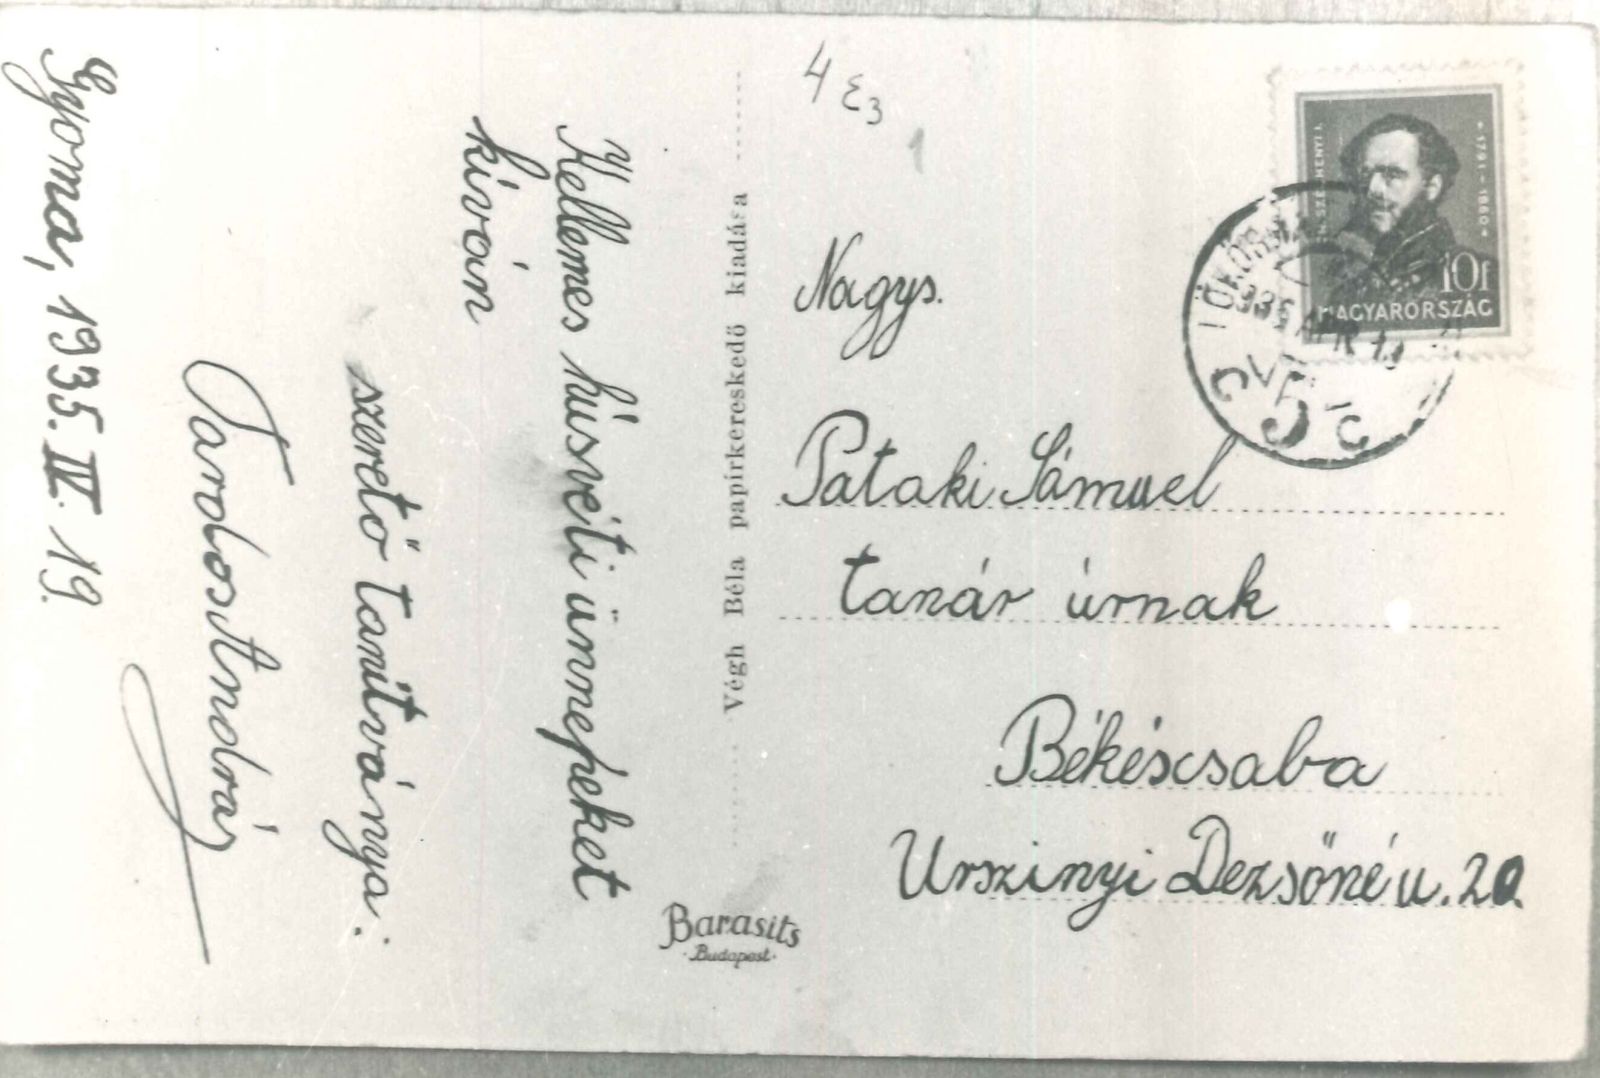 Gyoma, 1935. IV. 19.
Kellemes húsvéti ünnepeket
kíván
szerető tanítványa:
András
Végh Béla papírkereskedő kiadása
Barasits
Budapest
4 E3
1
Nagys.
Pataki Sámuel
tanár úrnak
Békéscsaba
Urszinyi Dezsőné u. 20.
1791-1860
10f
MAGYARORSZÁG